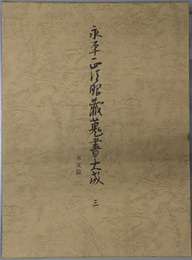 永平正法眼蔵蒐書大成 三
本文篇 三